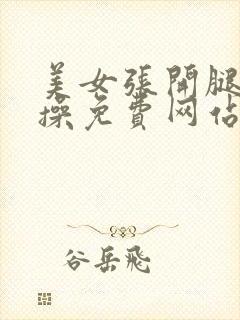 美女張開腿
操免費网佔
谷岳飛